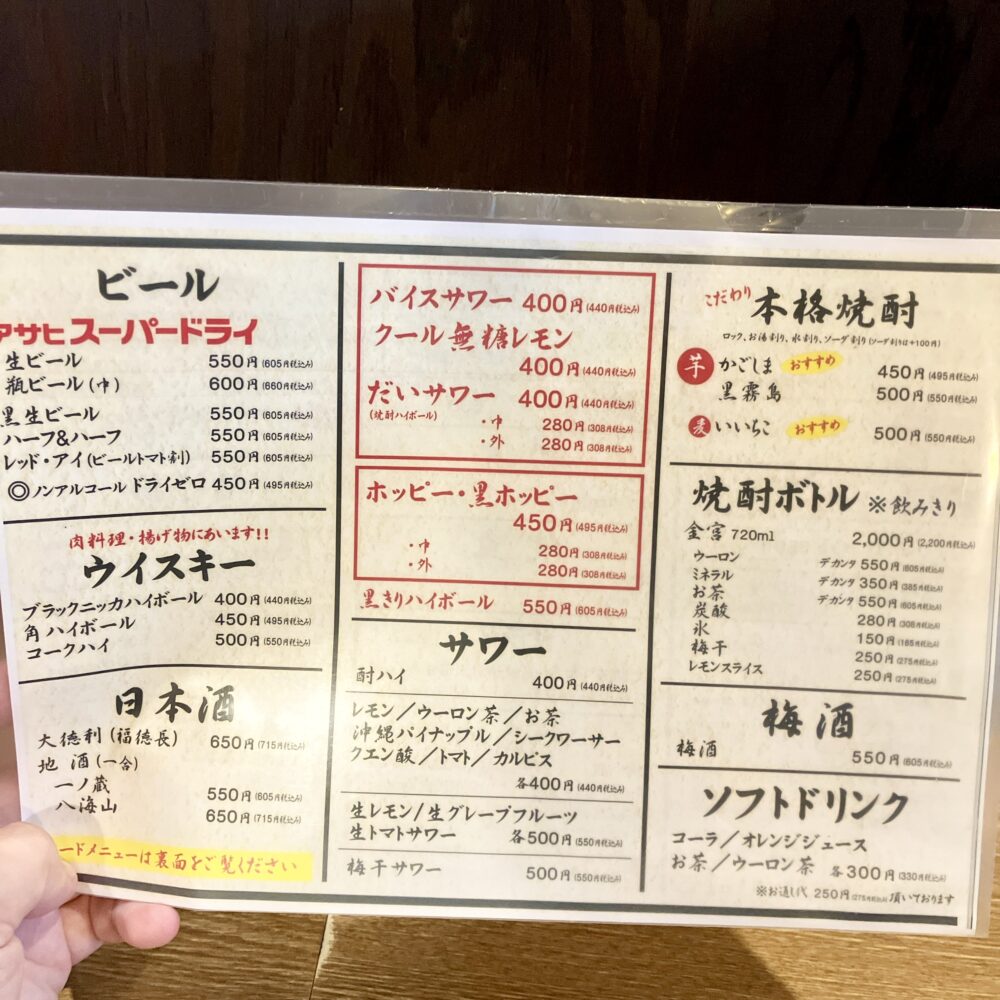 ビール
アサヒスーパードライ
生ビール 550円(605円税込み)
瓶ビール(中) 600円(660円税込み)
黒生ビール 550円(605円税込み)
ハーフ&ハーフ 550円(605円税込み)
レッド・アイ(ビールトマト割) 550円(605円税込み)
◎ノンアルコール ドライゼロ 450円(495円税込み)
肉料理・揚げ物にあいます!!
ウイスキー
ブラックニッカハイボール 400円(440円税込み)
角ハイボール 450円(495円税込み)
コークハイ 500円(550円税込み)
日本酒
大徳利(福徳長) 650円(715円税込み)
地酒(一合)
一ノ蔵 550円(605円税込み)
八海山 650円(715円税込み)
ードメニューは裏面をご覧ください
バイスサワー 400円(440円税込み)
クール無糖レモン
400円(440円税込み)
だいサワー 400円(440円税込み)
(焼酎ハイボール)
・中 280円(308円税込み)
・外 280円(308円税込み)
ホッピー・黒ホッピー
450円(495円税込み)
・中 280円(308円税込み)
・外 280円(308円税込み)
黒きりハイボール 550円(605円税込み)
サワー
酎ハイ 400円(440円税込み)
レモン/ウーロン茶/お茶
沖縄パイナップル/シークワーサー
クエン酸/トマト/カルピス
各400円(440円税込み)
生レモン/生グレープフルーツ
生トマトサワー 各500円(550円税込み)
梅干サワー 500円(550円税込み)
こだわり 本格焼酎
ロック、お湯割り、水割り、ソーダ割り(ソーダ割りは+100円)
芋 かごしま おすすめ 450円(495円税込み)
黒霧島 500円(550円税込み)
麦 いいちこ おすすめ 500円(550円税込み)
焼酎ボトル ※飲みきり
金宮 720ml 2,000円(2,200円税込み)
ウーロン デカンタ 550円(605円税込み)
ミネラル デカンタ 350円(385円税込み)
お茶 デカンタ 550円(605円税込み)
炭酸 280円(308円税込み)
氷 150円(165円税込み)
梅干 250円(275円税込み)
レモンスライス 250円(275円税込み)
梅酒
梅酒 550円(605円税込み)
ソフトドリンク
コーラ/オレンジジュース
お茶/ウーロン茶 各300円(330円税込み)
※お通し代 250円(275円税込み)頂いております